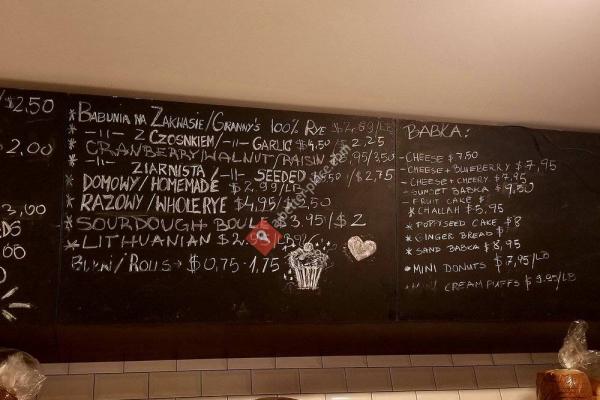 /$2.50
2.00
3.00
DS
00
0
* BABUNIA NA ZAKWASIE/GRANNY'S 100% RYE $2.99/LB
* -11- Z CZOSNKIEM/-11- GARLIC $4,50/2,25
* CRANBERRY/WALNUT/RAISIN
* -11- ZIARNISTA/-11- SEEDED /$2,75
* DOMOWY/HOMEMADE $2.99/LB
* RAZOWY/WHOLE RYE $4,95/2,50
* SOURDOUGH BOULE 3.95/$2
* LITHUANIAN $2.
ROLLS $0,75-1.75
BABKA:
- CHEESE $7.50
- CHEESE + BLUEBERRY $7,95
- CHEESE + CHERRY $7.95
- SUNSET BABKA $9,50
- FRUIT CAKE $
* CHALLAH $5.95
* POPPYSEED CAKE $8
* GINGER BREAD $
* SAND BABKA $8,95
* MINI DONUTS $7,95/LB
* MINI CREAM PUFFS $9.95/LB